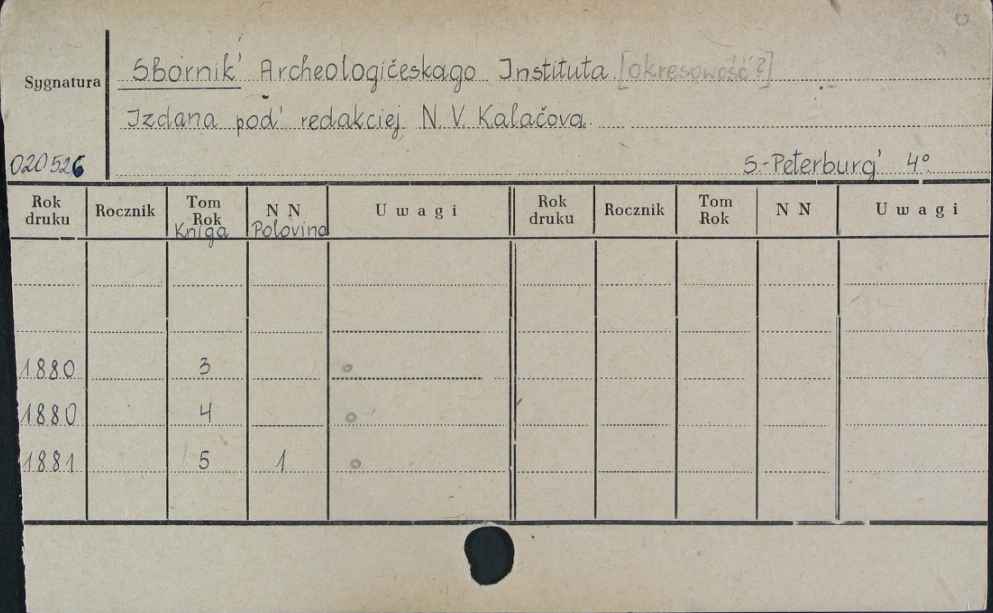 Sbornik' Archeologičeskago Instituta [okresowość?]
Sygnatura
Izdana pod' redakciej N. V. Kalačova
020526 S-Peterburg' 4°
Rok druku Rocznik Tom Rok N N Uwagi Rok druku Rocznik Tom Rok N N Uwagi
Kniga Polovina
1880 3
1880 4
1881 5 1